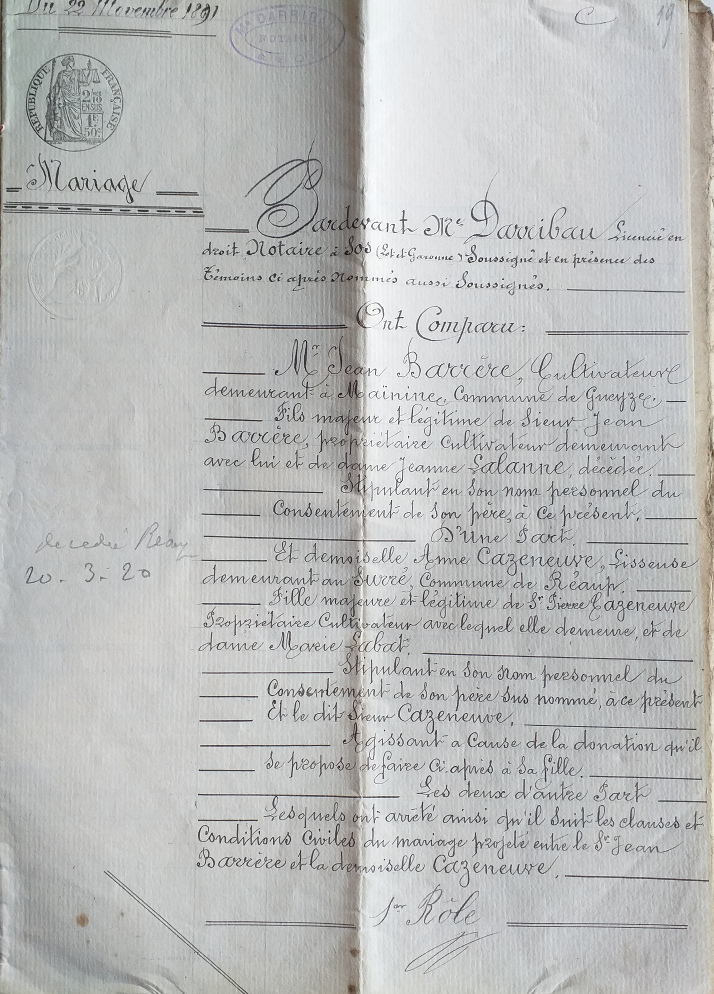 Du 22 Novembre 1891
Me DARRIBAU
NOTAIRE
C
19
RÉPUBLIQUE FRANÇAISE
2/10 EN SUS
1F 50c
Mariage
Pardevant Me Darribau Licencié en
droit Notaire à Sos (Lot et Garonne) Soussigné et en présence des
témoins ci après Nommés aussi Soussignés.
Ont Comparu:
Mr Jean Barrère, Cultivateur
demeurant à Maïnine, Commune de Gueyze.
Fils majeur et légitime de Sieur Jean
Barrère, propriétaire Cultivateur demeurant
avec lui et de dame Jeanne Lalanne, décédée.
Stipulant en Son nom personnel du
Consentement de Son père, à Ce présent.
D'Une Part.
Et demoiselle Anne Cazeneuve, Lisseuse
demeurant au Surré, Commune de Réaup.
Fille majeure et légitime de Sr Pierre Cazeneuve
Propriétaire Cultivateur avec lequel elle demeure, et de
dame Marie Labat.
Stipulant en Son Nom personnel du
Consentement de Son père Sus nommé, à ce présent
Et le dit Sieur Cazeneuve,
Agissant a Cause de la donation qu'il
se propose de faire Ci après à Sa fille.
Les deux d'autre Part
Lesquels ont arrêté ainsi qu'il Suit les clauses et
Conditions Civiles du mariage projeté entre le Sr Jean
Barrère et la demoiselle Cazeneuve.
1er Rôle
decede Reaup
20-3-20